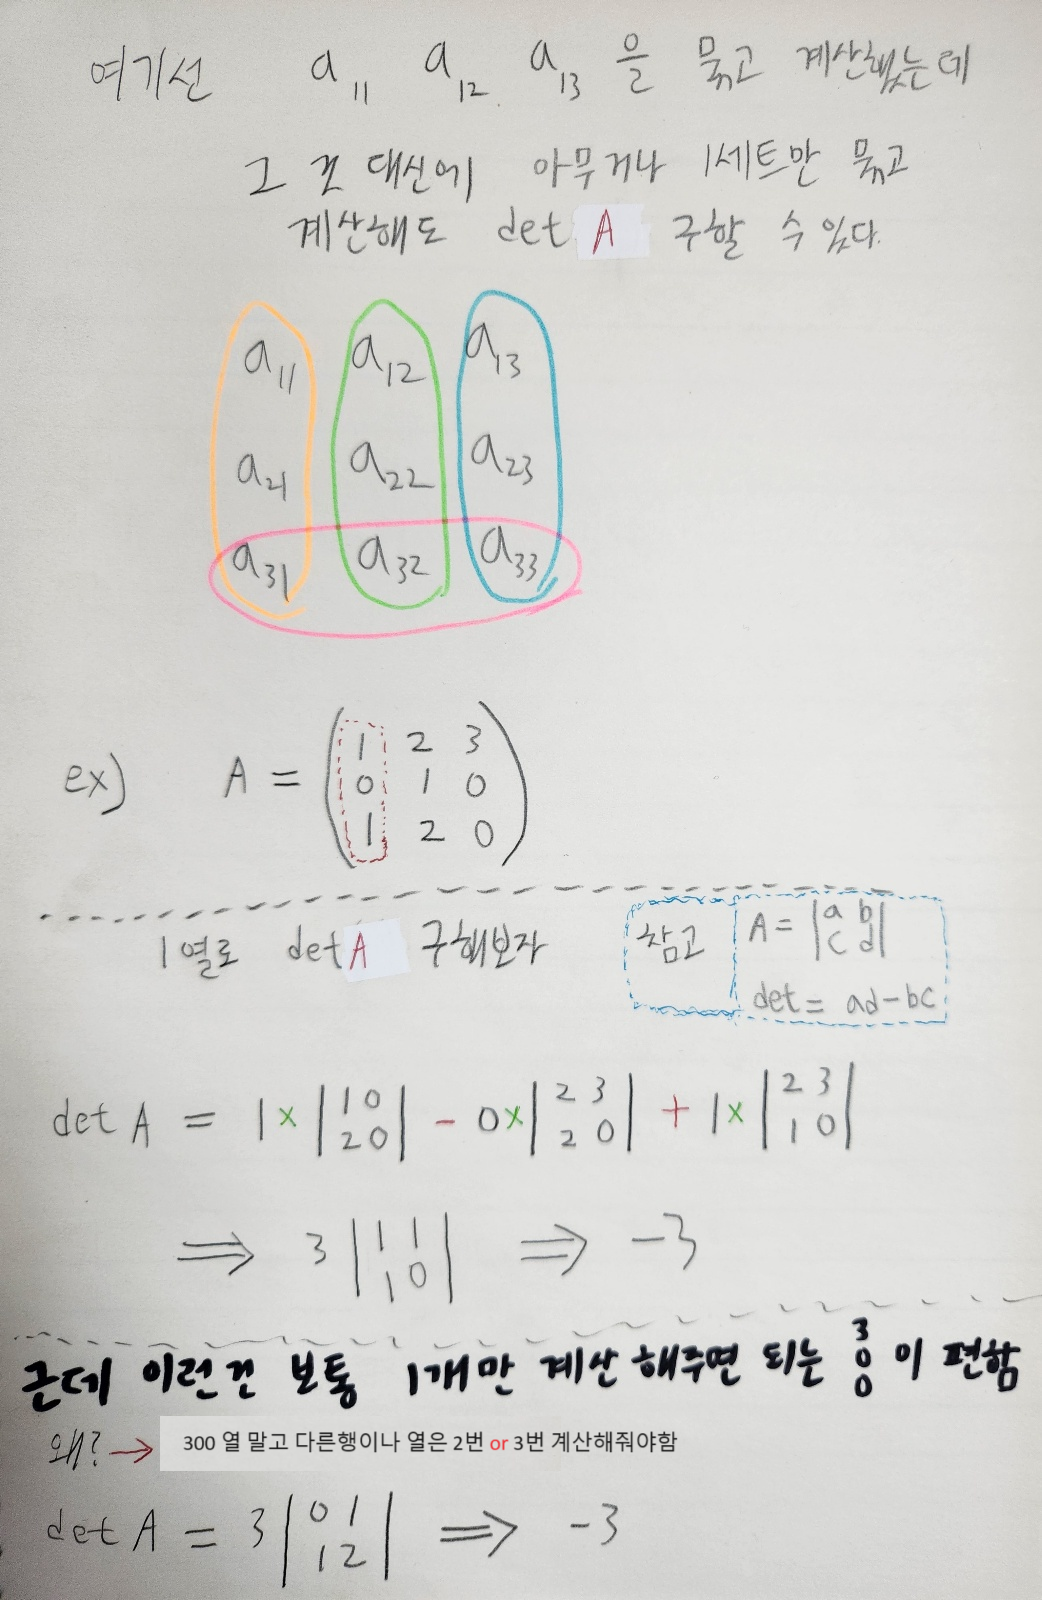 여기선 a₁₁ a₁₂ a₁₃ 을 묶고 계산했는데
그 것 대신에 아무거나 1세트만 묶고
계산해도 det A 구할 수 있다.
a₁₁ a₁₂ a₁₃
a₂₁ a₂₂ a₂₃
a₃₁ a₃₂ a₃₃
ex) A = (
1 2 3
0 1 0
1 2 0
)
1열로 det A 구해보자
참고
A = |a b|
|c d|
det = ad-bc
det A = 1× |1 0| - 0× |2 3| + 1× |2 3|
|2 0| |2 0| |1 0|
⇒ 3 |1 1| ⇒ -3
|1 0|
근데 이런건 보통 1개만 계산 해주면 되는 3 0 0 이 편함
왜? → 300 열 말고 다른행이나 열은 2번 or 3번 계산해줘야함
det A = 3 |0 1| ⇒ -3
|1 2|